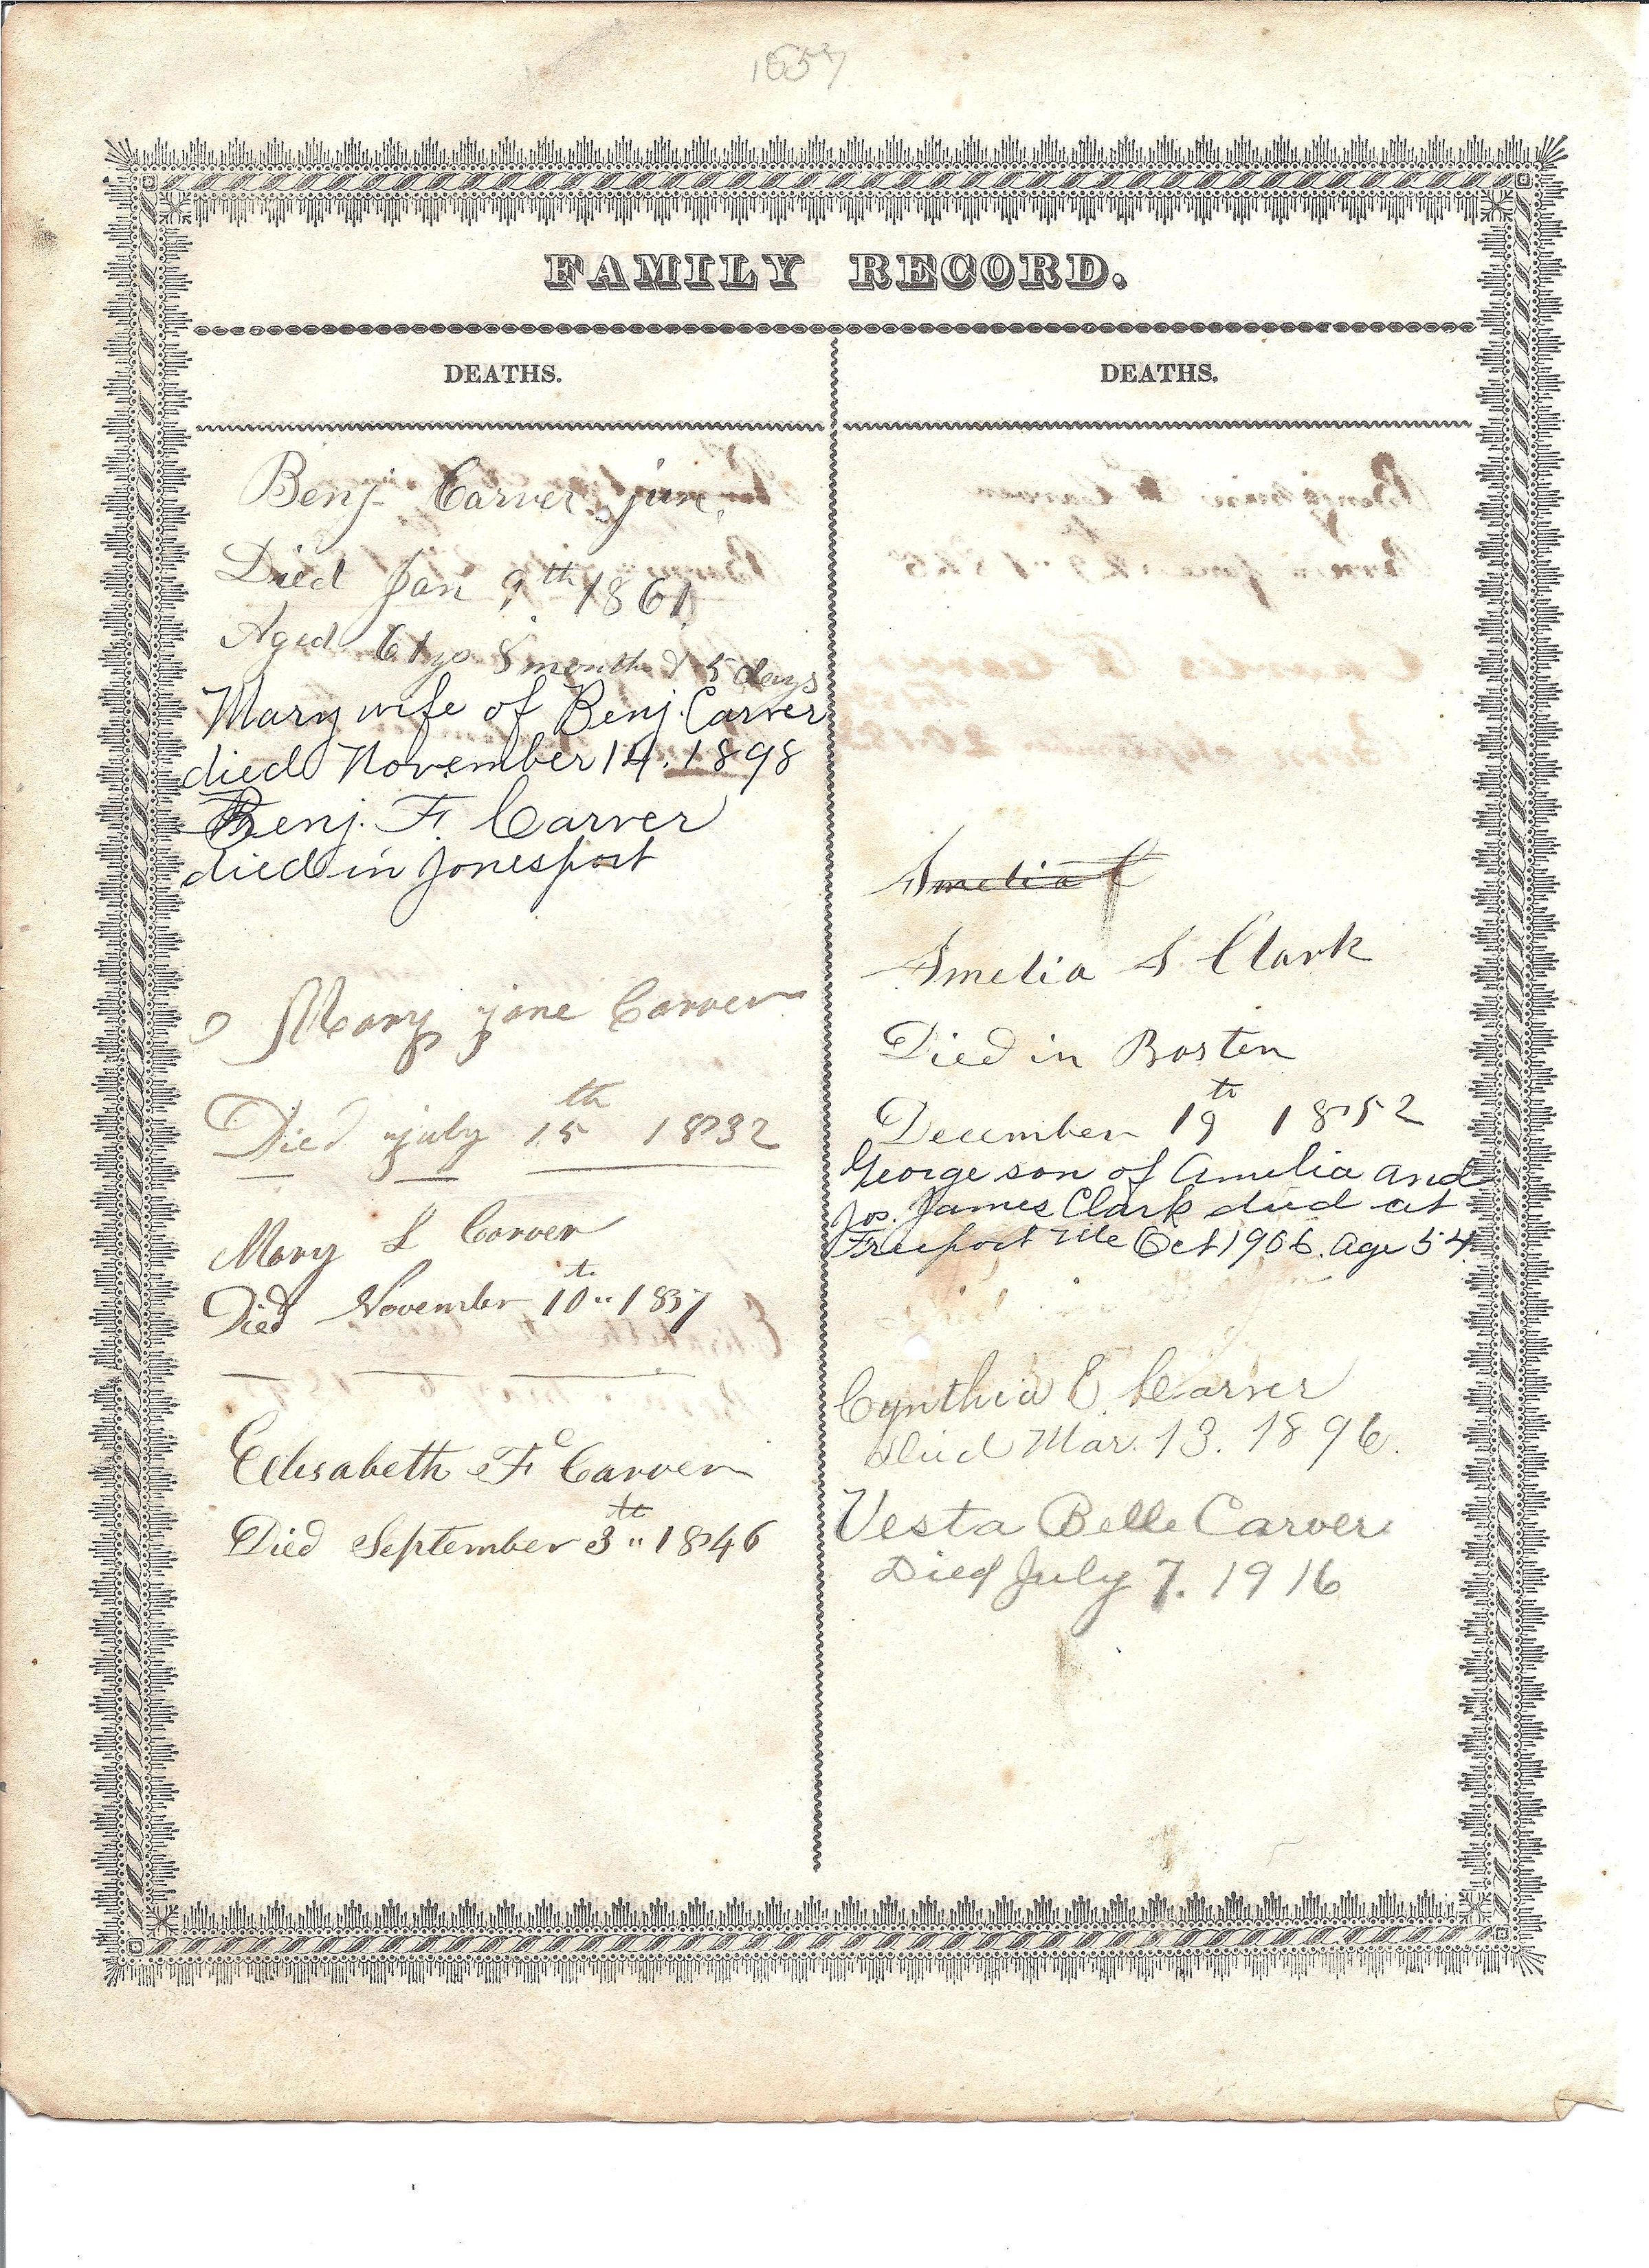 1857
FAMILY RECORD.
DEATHS.
Benj. Carver jun.
Died Jan 9th 1861
Aged 61 yrs 8 months & 5 days
Mary wife of Benj. Carver
died November 14. 1898
Benj. F. Carver
died in Jonesport
Mary jane Carver
Died july 15th 1832
Mary L Carver
Died November 10th 1837
Elisabeth F Carver
Died September 3th 1846
DEATHS.
Amelia C
Amelia S Clark
Died in Bosten
December 19th 1852
George son of Amelia and
Jos. James Clark died at
Freeport Me Oct 1906. age 54
Cynthia E Carver
died Mar. 13. 1896.
Vesta Belle Carver
Died July 7. 1916